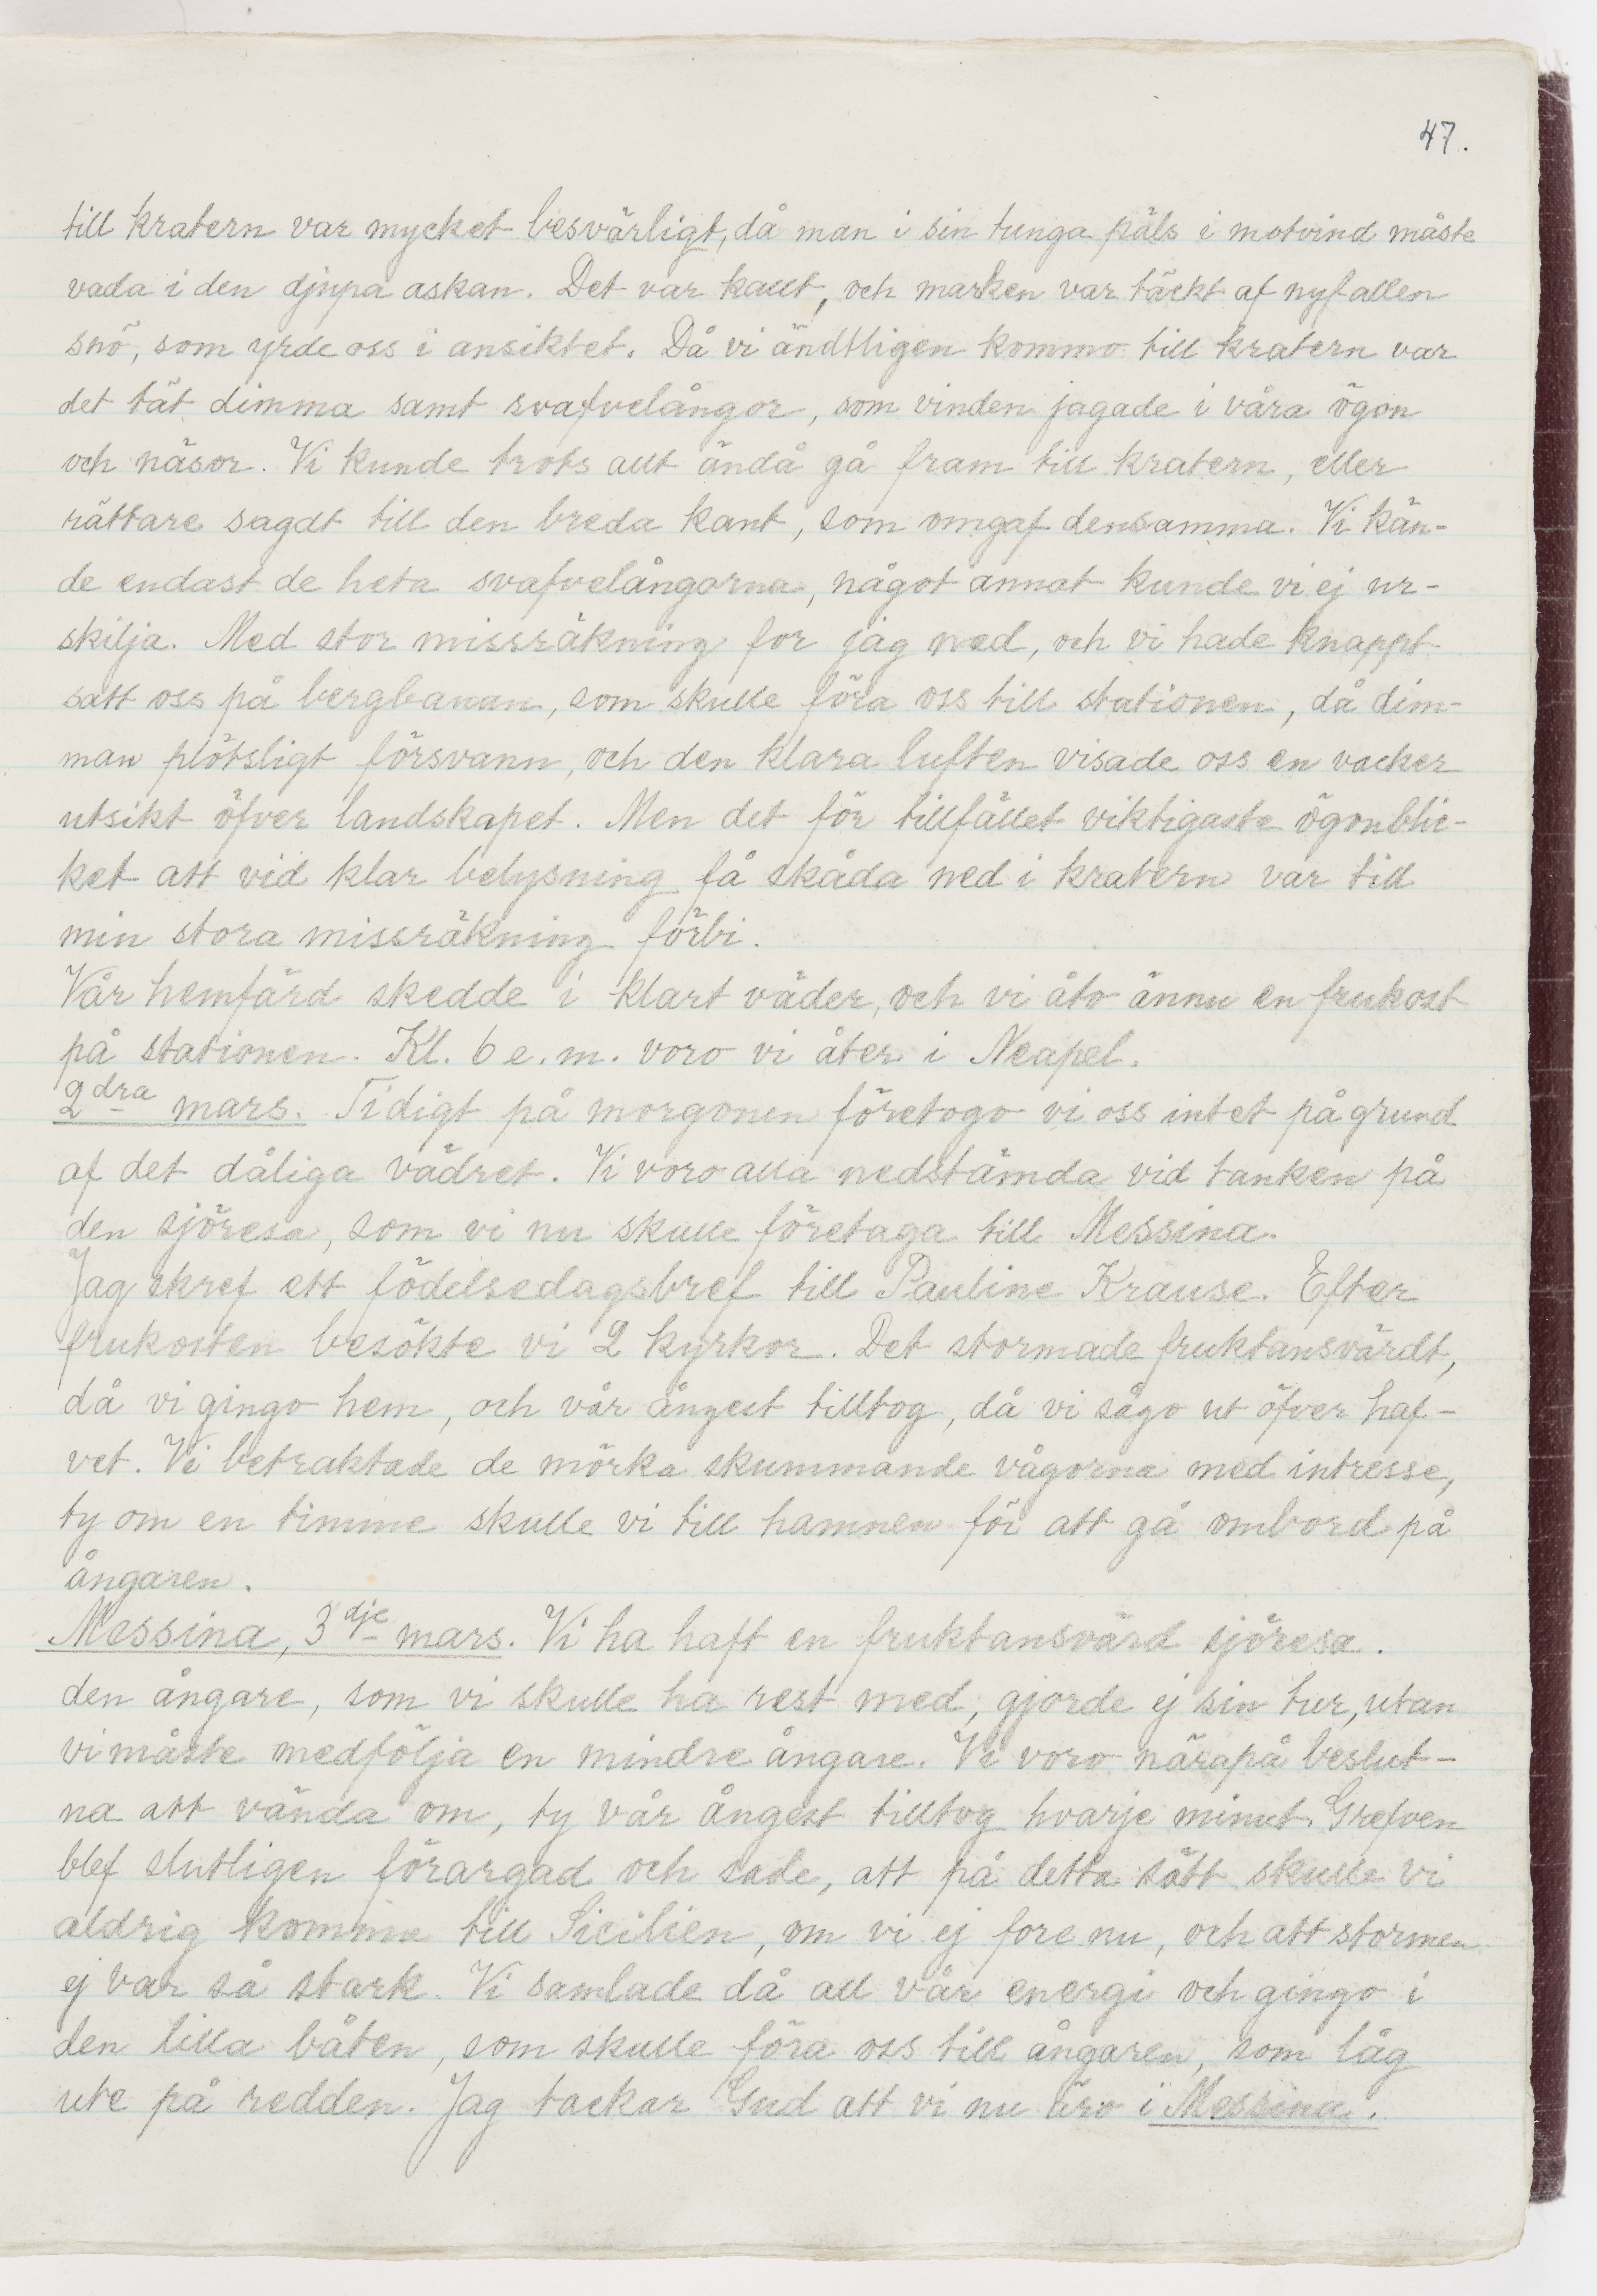 47.
till kratern var mycket besvärligt, då man i sin tunga päls i motvind måste
vada i den djupa askan. Det var kallt, och marken var täckt af nyfallen
snö, som yrde oss i ansiktet. Då vi ändtligen kommo till kratern var
det tät dimma samt svafvelångor, som vinden jagade i våra ögon
och näsor. Vi kunde trots allt ändå gå fram till kratern, eller
rättare sagdt till den breda kant, som omgaf densamma. Vi kän-
de endast de heta svafvelångorna, något annat kunde vi ej ur-
skilja. Med stor missräkning for jag ned, och vi hade knappt
satt oss på bergbanan, som skulle föra oss till stationen, då dim-
man plötsligt försvann, och den klara luften visade oss en vacker
utsikt öfver landskapet. Men det för tillfället viktigaste ögonblic-
ket att vid klar belysning få skåda ned i kratern var till
min stora missräkning förbi.
Vår hemfärd skedde i klart väder, och vi åto ännu en frukost
på stationen. Kl. 6 e.m. voro vi åter i Neapel.
2dra mars. Tidigt på morgonen företogo vi oss intet på grund
af det dåliga vädret. Vi voro alla nedstämda vid tanken på
den sjöresa, som vi nu skulle företaga till Messina.
Jag skref ett födelsedagsbref till Pauline Krause. Efter
frukosten besökte vi 2 kyrkor. Det stormade fruktansvärdt,
då vi gingo hem, och vår ångest tilltog, då vi sågo ut öfver haf-
vet. Vi betraktade de mörka skummande vågorna med intresse,
ty om en timme skulle vi till hamnen för att gå ombord på
ångaren.
Messina, 3dje mars. Vi ha haft en fruktansvärd sjöresa.
den ångare, som vi skulle ha rest med, gjorde ej sin tur, utan
vi måste medfölja en mindre ångare. Vi voro närapå beslut-
na att vända om, ty vår ångest tilltog hvarje minut. Grefven
blef slutligen förargad och sade, att på detta sätt skulle vi
aldrig komma till Sicilien, om vi ej fore nu, och att stormen
ej var så stark. Vi samlade då all vår energi och gingo i
den lilla båten, som skulle föra oss till ångaren, som låg
ute på redden. Jag tackar Gud att vi nu äro i Messina.